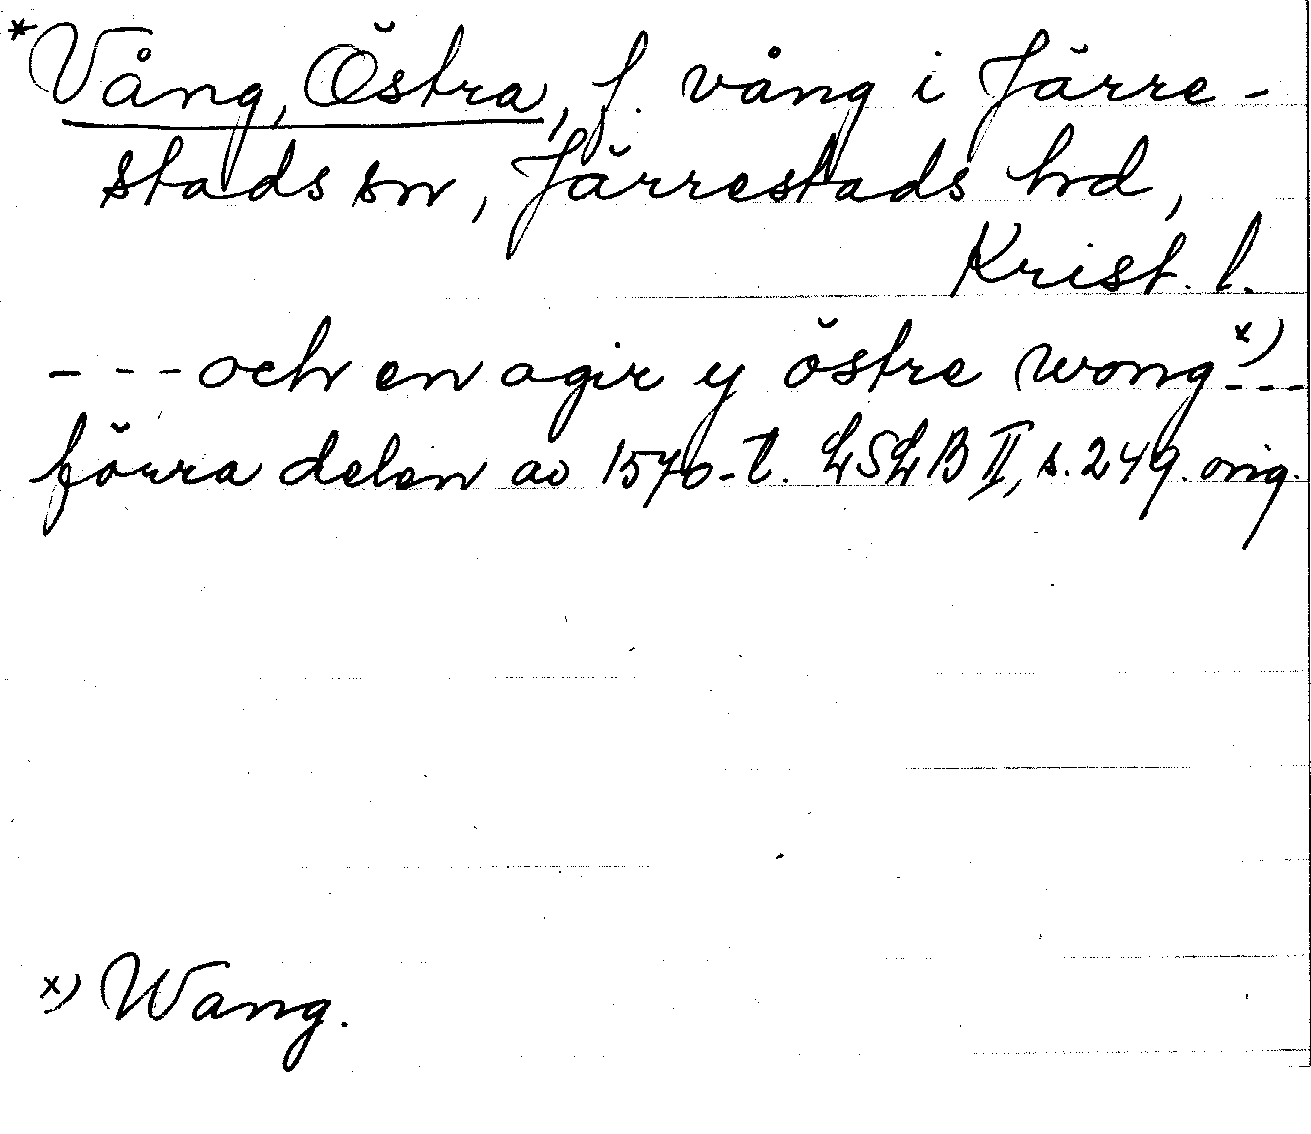 *Vång, Östra, f. vång i Järre-
stads sn, Järrestads hd,
Krist. l.
- - - och en agir y östre wong x) - - -
förra delen av 1570-t. LSLB II, s. 249. orig.
x) Wang.